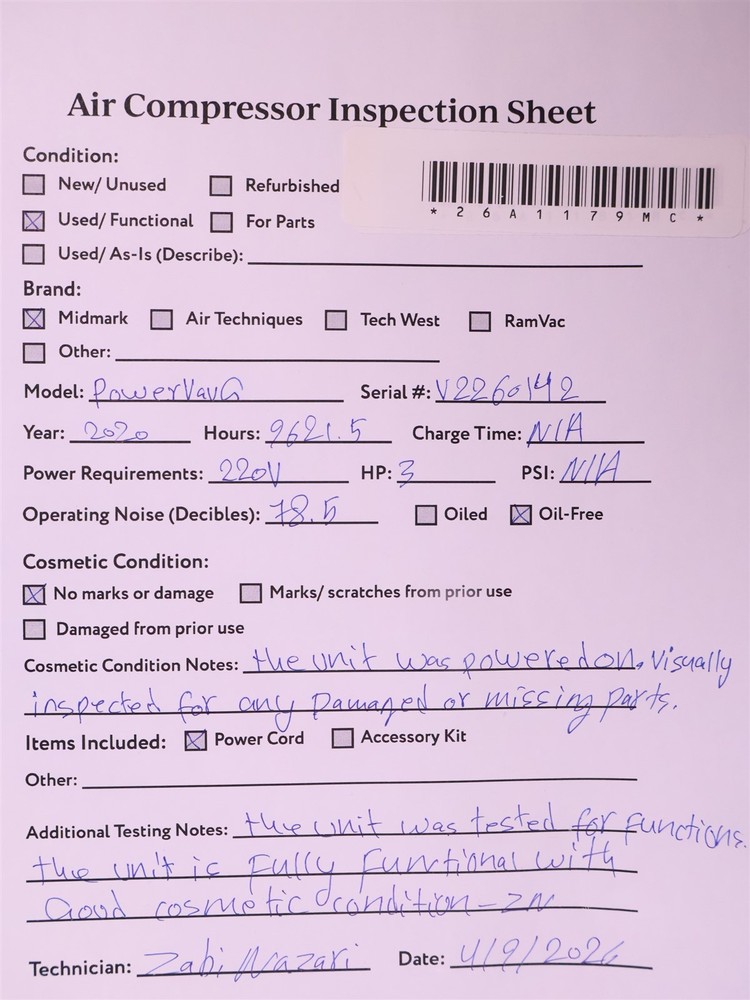 Air Compressor Inspection Sheet
Condition:
New/ Unused Refurbished
*26A1179MC*
Used/ Functional For Parts
Used/ As-Is (Describe):
Brand:
Midmark Air Techniques Tech West RamVac
Other:
Model: PowerVavG Serial #: V2260142
Year: 2020 Hours: 9621.5 Charge Time: N/A
Power Requirements: 220V HP: 3 PSI: N/A
Operating Noise (Decibles): 78.5 Oiled Oil-Free
Cosmetic Condition:
No marks or damage Marks/ scratches from prior use
Damaged from prior use
Cosmetic Condition Notes: the unit was powered on. Visually
inspected for any Damaged or missing parts.
Items Included: Power Cord Accessory Kit
Other:
Additional Testing Notes: the unit was tested for functions.
the unit is fully functional with
Good cosmetic condition - ZN
Technician: Zabi Nazari Date: 4/9/2026